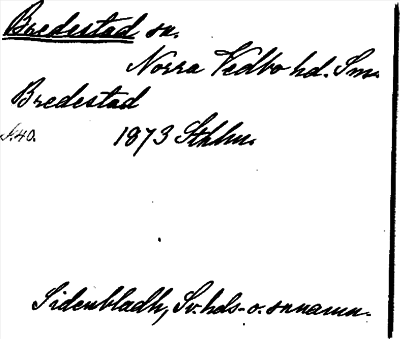 Bredestad sn.
Norra Vedbo hd. Sm.
Bredestad
s. 40. 1873 Sthlm.
Sidenbladh, Sv. hds- o. snnamn.